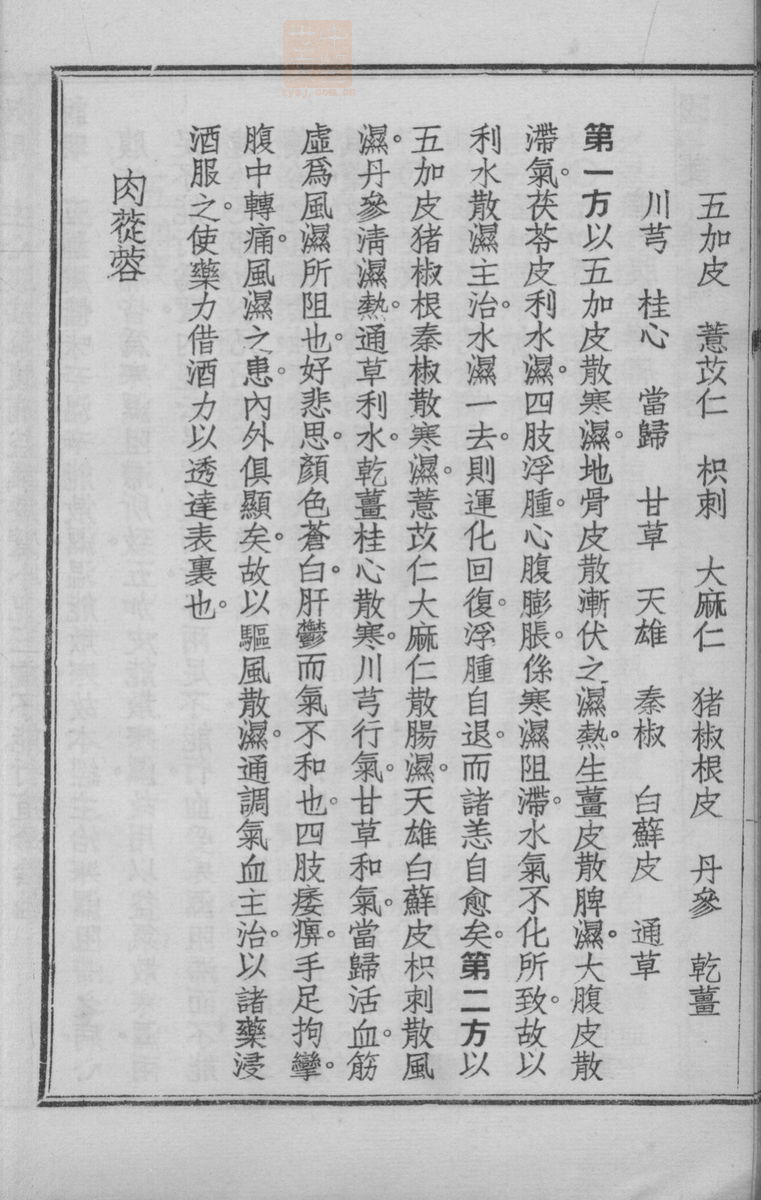 五加皮　薏苡仁　枳刺　大麻仁　猪椒根皮　丹參　乾薑
川芎　桂心　當歸　甘草　天雄　秦椒　白蘇皮　通草
第一方以五加皮散寒濕。地骨皮散漸伏之濕熱。生薑皮散脾濕。大腹皮散
滯氣。茯苓皮利水濕。四肢浮腫。心腹膨脹。係寒濕阻滯。水氣不化所致。故以
利水散濕主治。水濕一去。則運化回復。浮腫自退。而諸恙自愈矣。第二方以
五加皮猪椒根秦椒散寒濕。薏苡仁大麻仁散腸濕。天雄白蘇皮枳刺散風
濕。丹參淸濕熱。通草利水。乾薑桂心散寒。川芎行氣。甘草和氣。當歸活血。筋
虛爲風濕所阻也。好悲思。顏色蒼白。肝鬱而氣不和也。四肢痿痹。手足拘攣。
腹中轉痛。風濕之患。內外俱顯矣。故以驅風散濕。通調氣血主治。以諸藥浸
酒服之。使藥力借酒力以透達表裏也。
肉蓯蓉